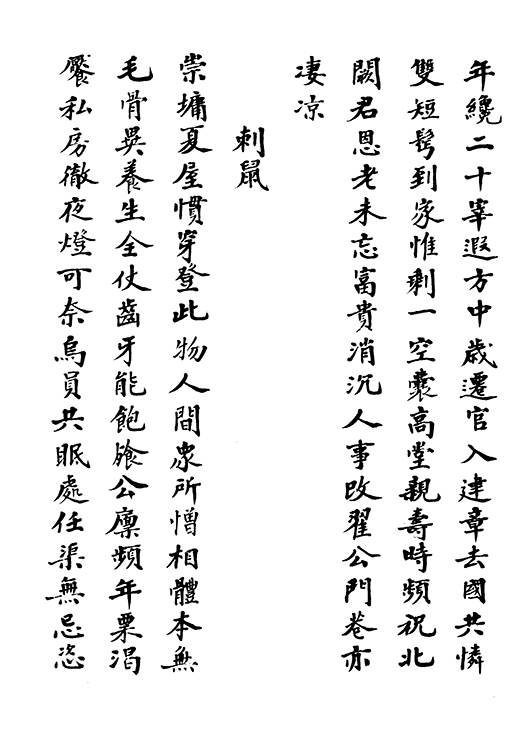 年纔二十宰遐方中歲遷官入建章去國共憐
雙短鬂到家惟剩一空囊高堂親壽時頻祝北
闕君恩老未忘富貴消沉人事改翟公門巷亦
凄凉
刺鼠
崇墉夏屋慣穿登此物人間衆所憎相體本無
毛骨異養生全仗齒牙能飽飱公廩頻年粟渴
饜私房徹夜燈可奈烏員共眠處任渠無忌恣